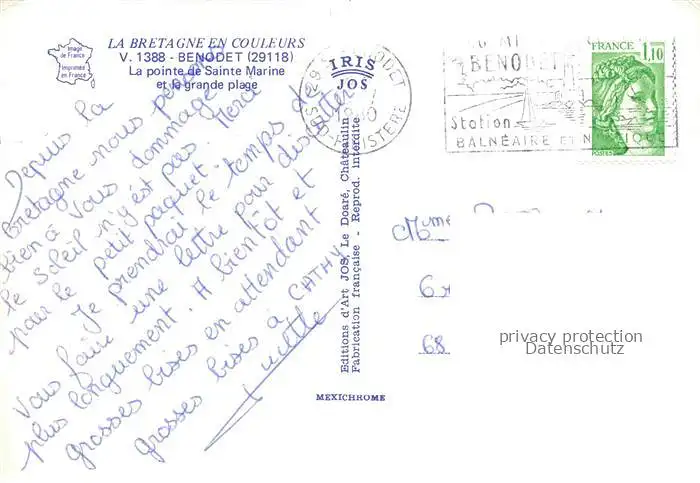 Image
de France
Imprimée
en France
LA BRETAGNE EN COULEURS
V. 1388 - BENODET (29118)
La pointe de Sainte Marine
et la grande plage
IRIS
JOS
Editions d'Art JOS, Le Doaré, Châteaulin
Fabrication française - Reprod. interdite
MEXICHROME
BENODET
Station
BALNÉAIRE ET
FRANCE
1,10
POSTES
Depuis la
Bretagne nous pensons
bien à vous dommage
le soleil n'y est pas. Merci
pour le petit paquet.
Je prendrai le temps de
vous faire une lettre pour discuter
plus longuement. A bientôt et
grosses bises en attendant
grosses bises à CATHY
Mme
68
privacy protection
Datenschutz